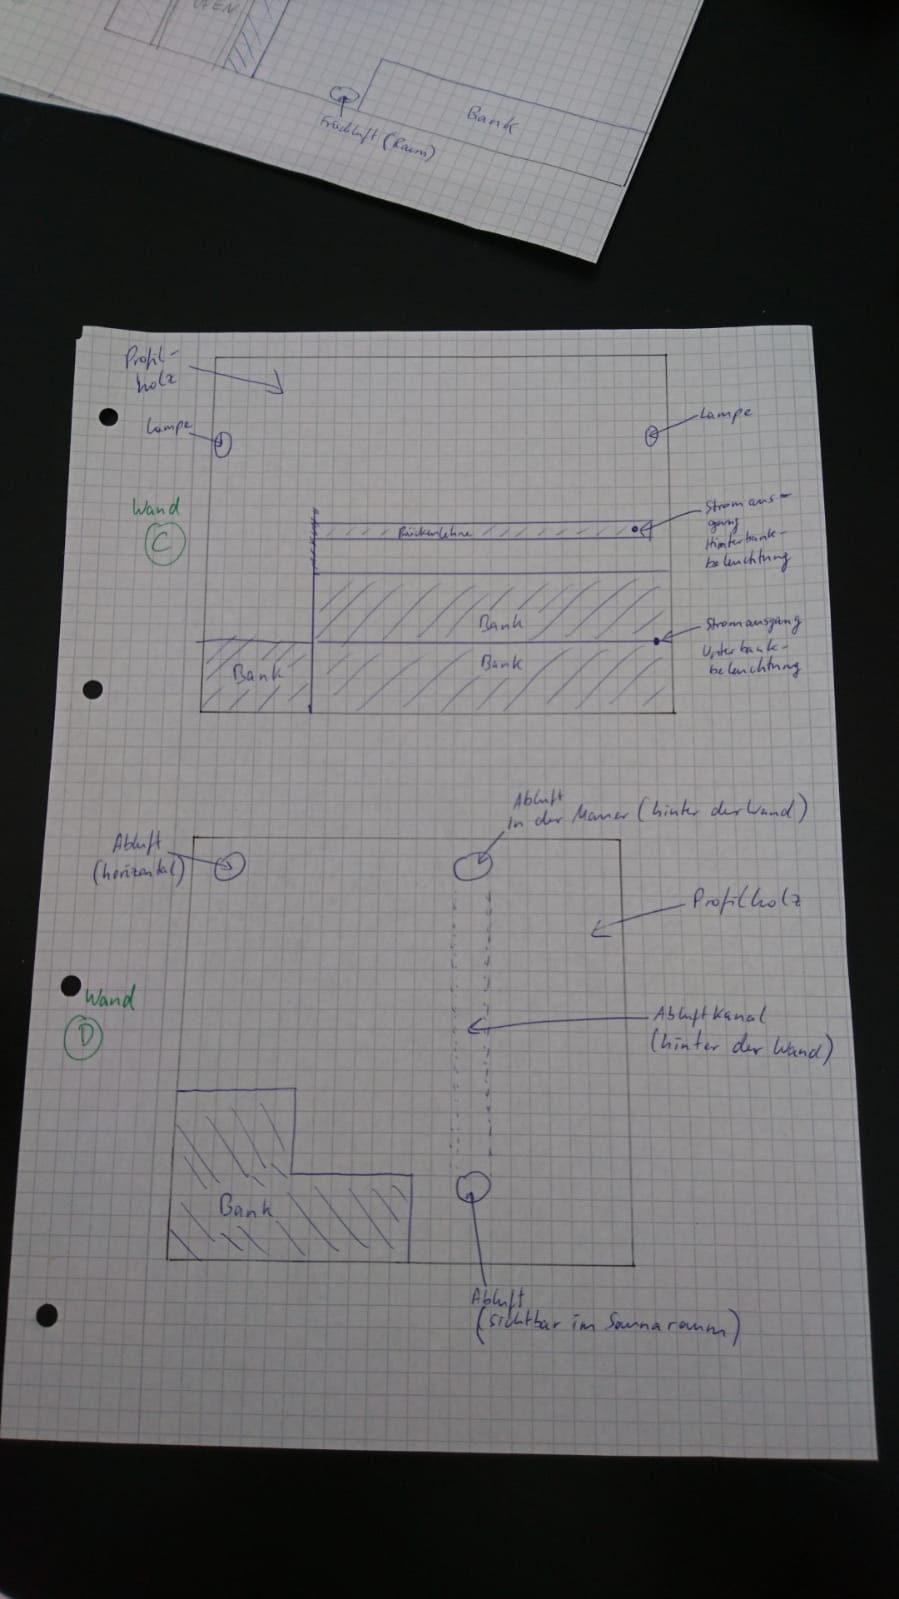 OFEN
Bank
Frischluft (Raum)
Profil-
holz
Lampe
Lampe
Wand
C
Rückenlehne
Stromaus-
gang
Hinterbank-
beleuchtung
Bank
Stromausgang
Unterbank-
beleuchtung
Bank
Bank
Abluft
in der Mauer (hinter der Wand)
Abluft
(horizontal)
Profilholz
Wand
D
Abluftkanal
(hinter der Wand)
Bank
Abluft
(sichtbar im Saunaraum)